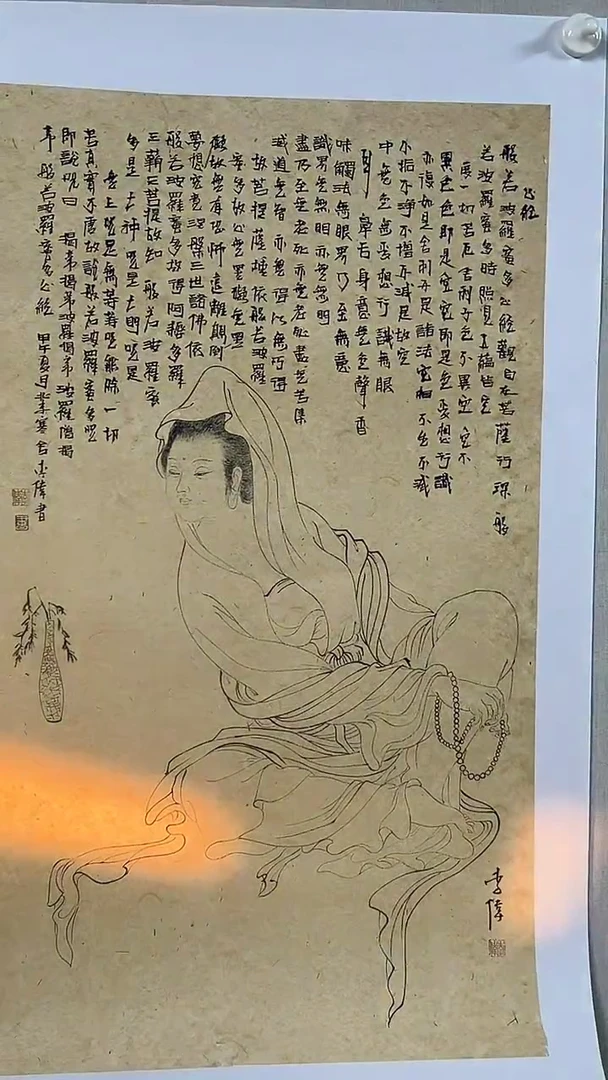 心经
般若波羅蜜多心经觀自在菩薩行深般
若波羅蜜多時照見五蘊皆空
度一切苦厄舍利子色不異空空不
異色色即是空空即是色受想行識
亦復如是舍利子是諸法空相不生不滅
不垢不净不增不减是故空
中無色無受想行識無眼
耳鼻舌身意無色聲香
味觸法無眼界乃至無意
識界無無明亦無無明
盡乃至無老死亦無老死盡無苦集
滅道無智亦無得以無所得
故菩提薩埵依般若波羅
蜜多故心無罣礙無罣
礙故無有恐怖遠離顛倒
夢想究竟涅槃三世諸佛依
般若波羅蜜多故得阿耨多羅
三藐三菩提故知般若波羅蜜
多是大神咒是大明咒是
無上咒是無等等咒能除一切
苦真實不虛故說般若波羅蜜多咒
即說咒曰揭帝揭帝波羅揭帝波羅僧揭
帝般若波羅蜜多心经 寒舍李偉書
李偉